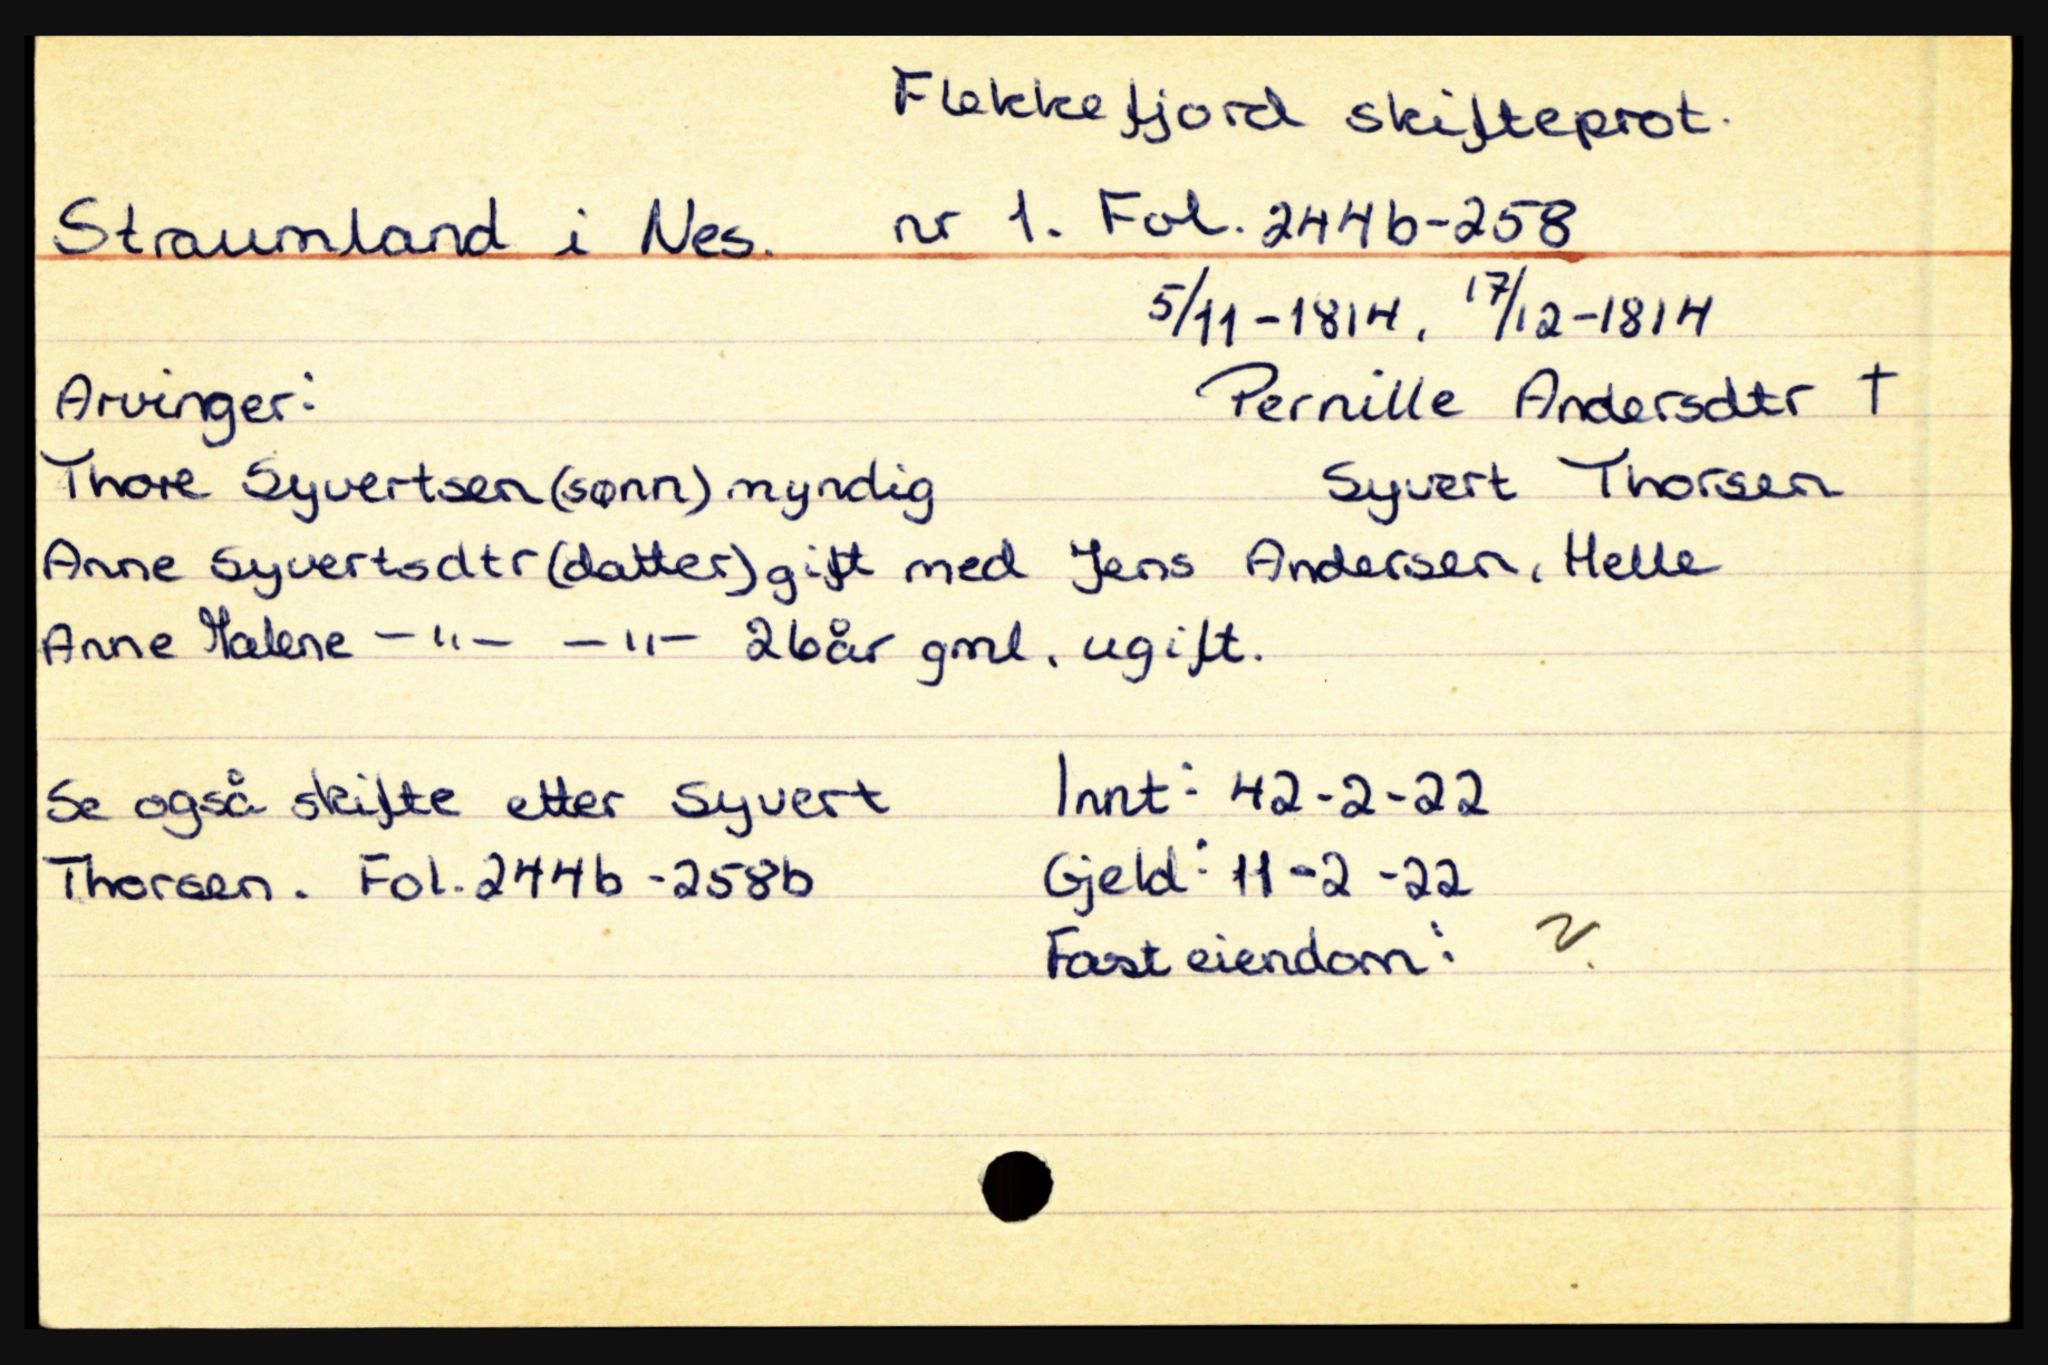 Flekkefjord skifteprot.
Straumland i Nes. nr 1. Fol. 244b-258
5/11-1814, 17/12-1814
Arvinger: Pernille Andersdtr †
Thore Syvertsen (sønn) myndig Syvert Thorsen
Anne Syvertsdtr (datter) gift med Jens Andersen, Helle
Anne Malene -"- -"- 26 år gml, ugift.
Se også skifte etter Syvert Innt: 42-2-22
Thorsen. Fol. 244b-258b Gjeld: 11-2-22
Fast eiendom: